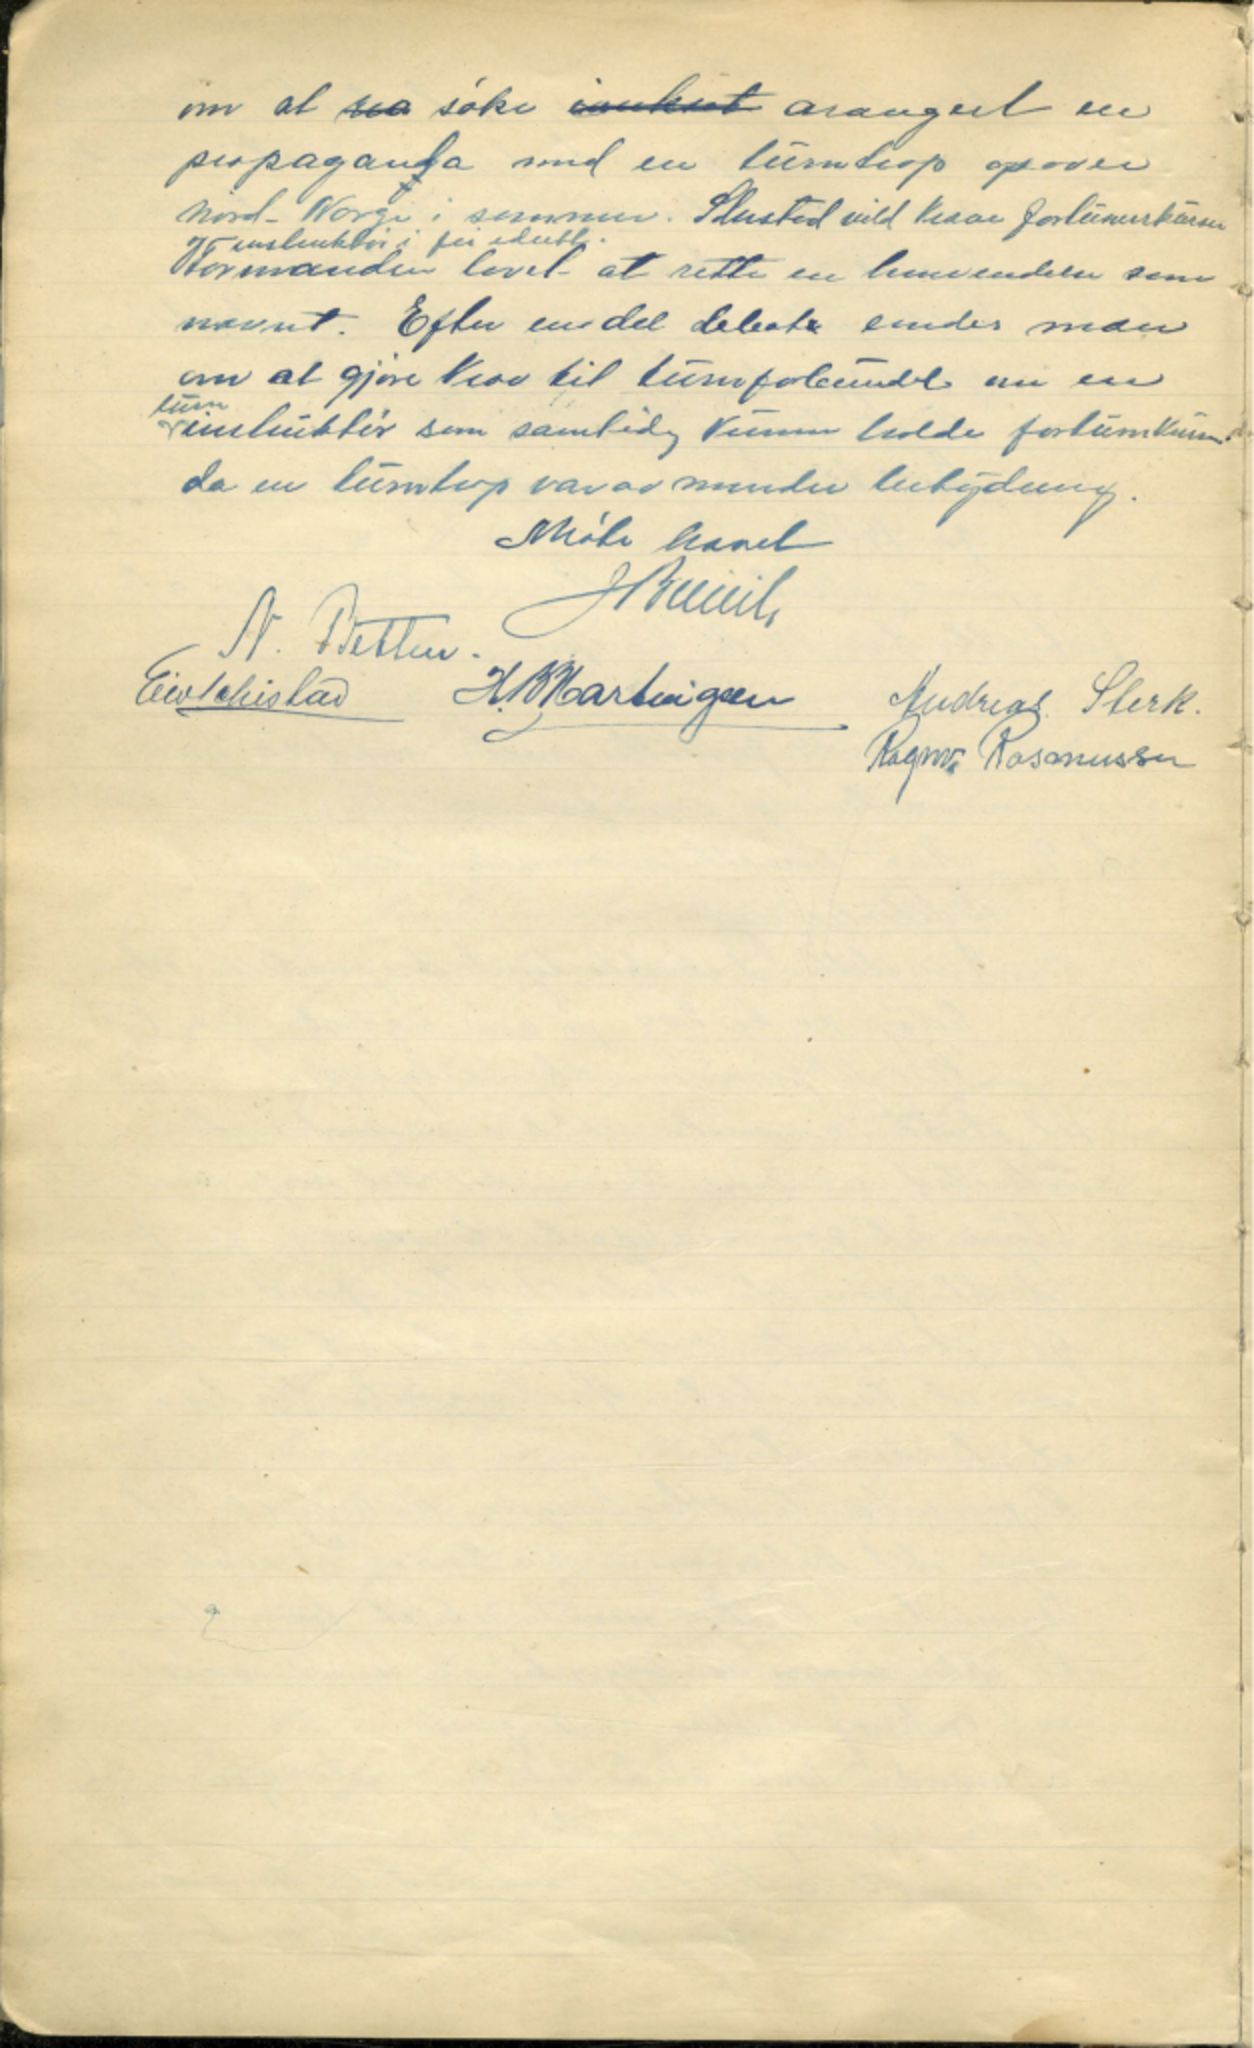 om at søke arangert en
propaganda med en turntrop opover
Nord-Norge i sommer. vild krave forturnerkurser
instruktør i fri idrett.
Formanden lovet at rette en henvendelse som
nævnt. Efter en del debat endes man
om at gjøre krav til turnforbundet om en
turn
instruktør som samtidig kunne holde forturnkursus
da en turntrop var av mindre betydning.
Møte hævet
N. Petter.
H. B. Hartvigsen Andreas Sterk.
Ragnv. Rasmussen